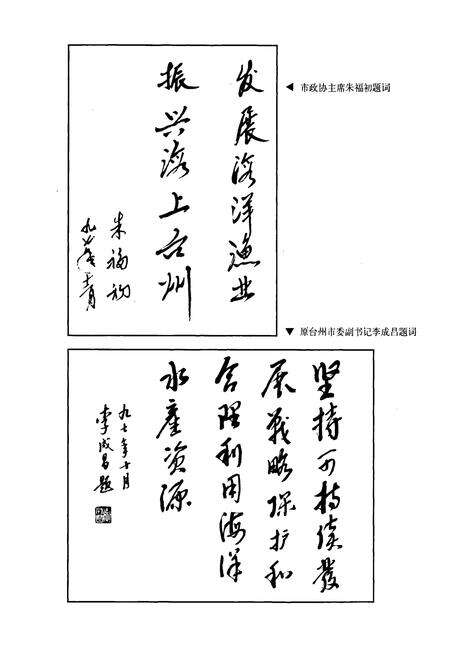 ◀ 市政协主席朱福初题词
发展海洋渔业
振兴海上台州
朱福初
▼ 原台州市委副书记李成昌题词
坚持可持续發
展战略保护和
合理利用海洋
水產资源
九七年十月
李成昌题